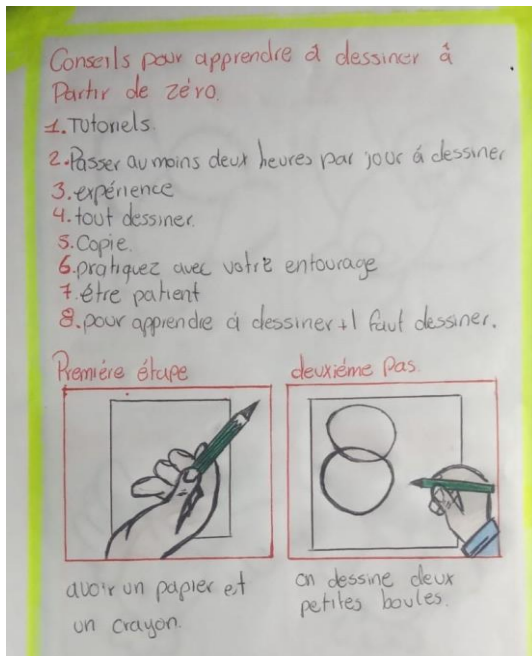 Conseils pour apprendre à dessiner à
Partir de zéro.
1. Tutoriels.
2. Passer au moins deux heures par jour á dessiner
3. expérience
4. tout dessiner.
5. Copie.
6. pratiquez avec votre entourage
7. être patient
8. pour apprendre á dessiner il faut dessiner.
Premiére étape
deuxiéme Pas.
avoir un papier et
un crayon.
on dessine deux
petites boules.